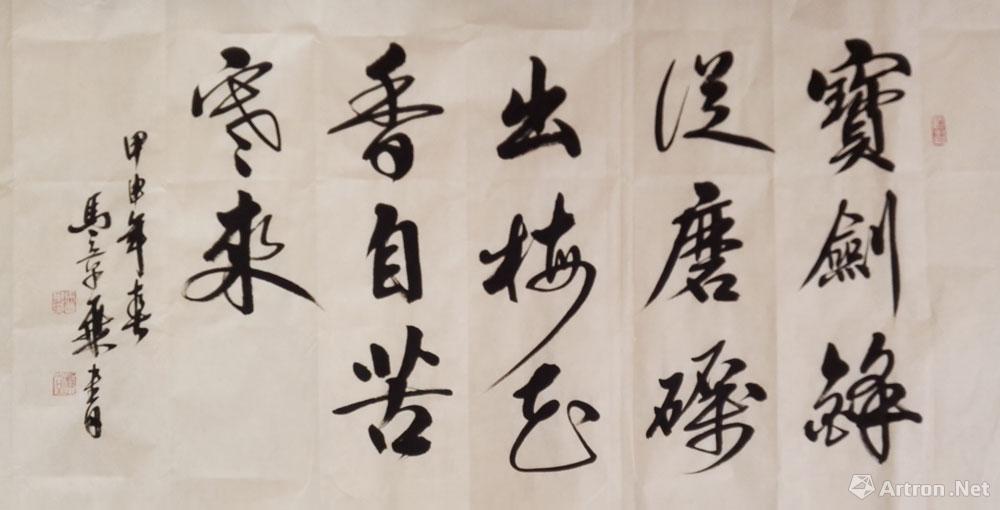 寶劍鋒
從磨礪
出梅花
香自苦
寒來
甲申年春
馬章乘書
Artron.Net